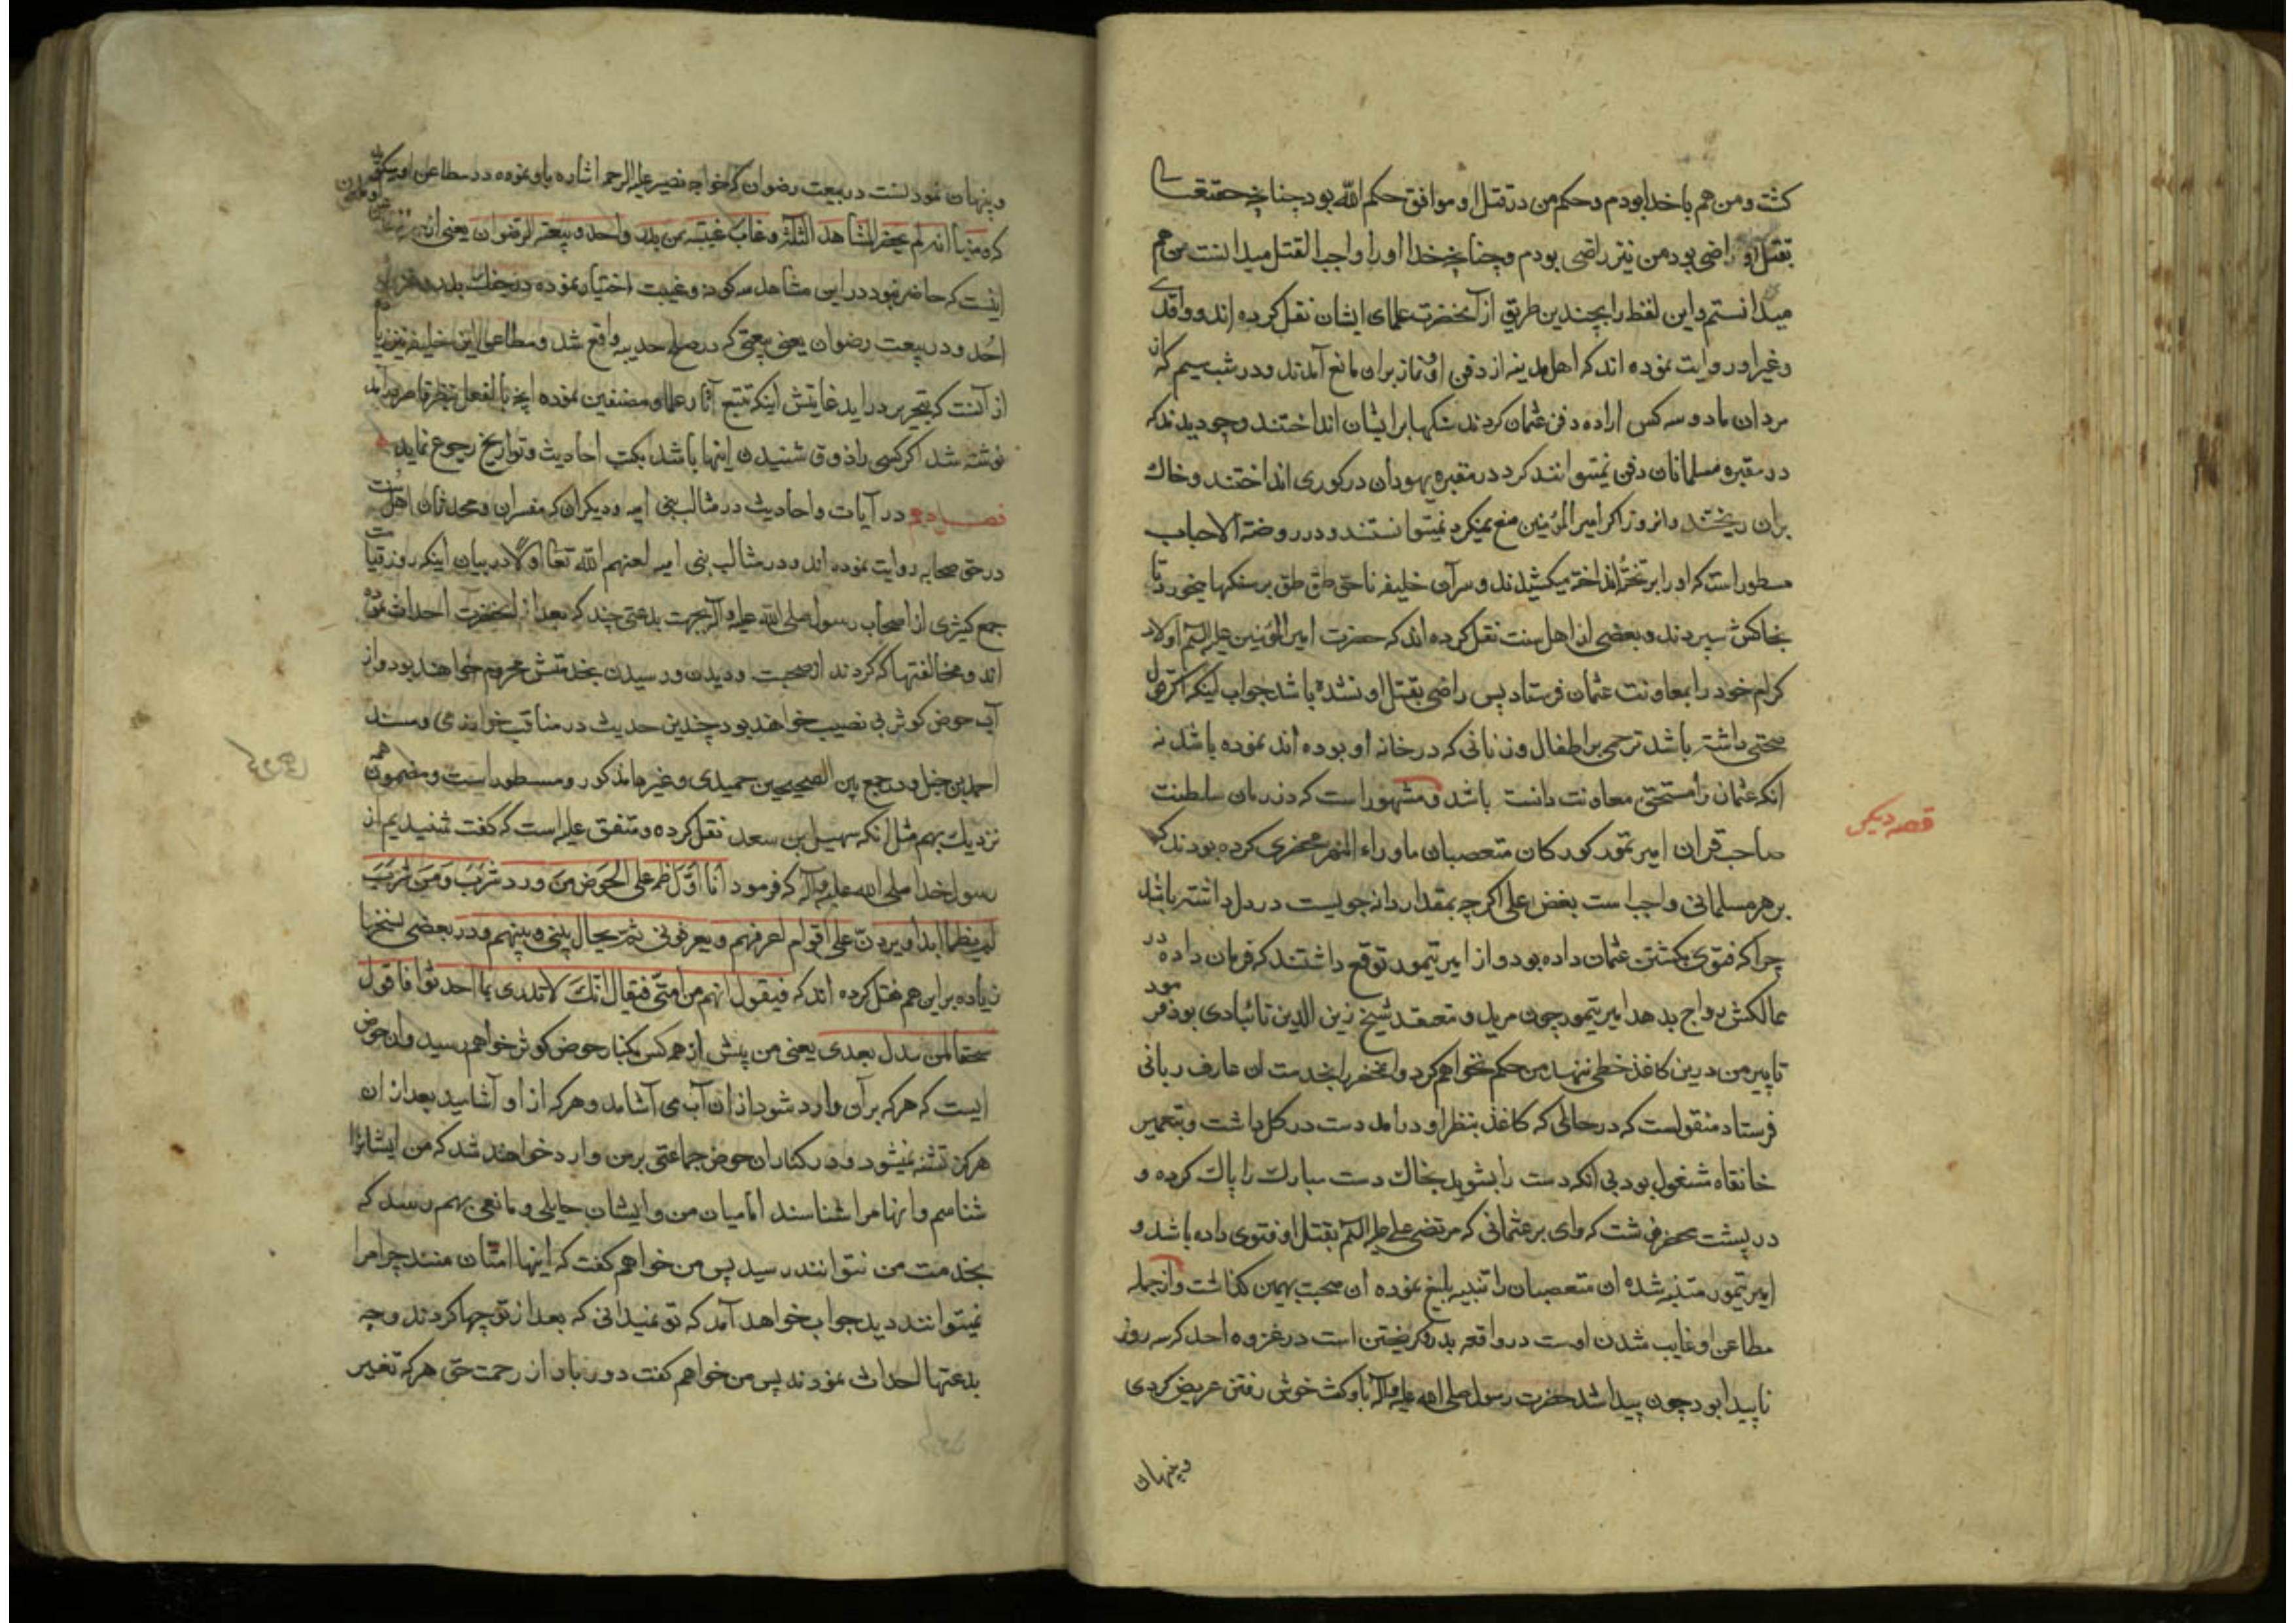 کشت و من هم با خدا بودم و حکم من در قتل او موافق حکم الله بود چنانچه حقتعالی
بقتل او راضی بود من نیز راضی بودم و چنانچه خدا او را واجب القتل میدانست من هم
میدانستم و این لفظ را بچندین طریق از آنحضرت علمای ایشان نقل کرده اند و واقدی
و غیر او روایت نموده اند که اهل مدینه از دفن او و نماز بران مانع آمدند و در شب سیم که از
مردان ما دو سه کس اراده دفن عثمان کردند سنکها بر ایشان انداختند و چو دیدند که
در مقبره مسلمانان دفن نمیتوانند کرد در مقبره یهودان در کوری انداختند و خاک
بران ریختند و انروز اکر امیر المؤمنین منع نمیکرد نمیتوانستند و در روضة الاحباب
مسطور است که او را بر تختهٔ انداخته میکشیدند و سر آن خلیفه ناحق طق طق بر سنکها میخورد تا
بخاکش سپردند و بعضی از اهل سنت نقل کرده اند که حضرت امیر المؤمنین علیه السلم اولاد
کرام خود را بمعاونت عثمان فرستاد پس راضی بقتل او نشده باشد جواب اینکه اکر نقل
صحتی داشته باشد ترحمی بر اطفال و زنانی که در خانه او بوده اند نموده باشد نه
انکه عثمان را مستحق معاونت دانسته باشد و مشهور است که در زمان سلطنت
قصه دیکر
صاحب قران امیر تمور کورکان متعصبان ماوراء النهر محضری کرده بودند که
بر هر مسلمانی واجب است بغض علی اکرچه بمقدار دانه جویست در دل داشته باشد
چرا که فتوی بکشتن عثمان داده بود و از امیر تیمور توقع داشتند که فرمان داده در
ممالکش رواج بدهد امیر تیمور چون مرید و معتقد شیخ زین الدین تائبادی بود فرمود
تا پیر من درین کاغذ خطی ننهد من حکم نخواهم کرد و محضر را بخدمت ان عارف ربانی
فرستاد منقولست که در حالی که کاغذ بنظر او در امد دست در کل داشت و بتعمیر
خانقاه مشغول بود بی انکه دست را بشوید بخاک دست مبارک را پاک کرده و
در پشت محضر نوشت که وای بر عثمانی که مرتضی علی علیه السلم بقتل او فتوی داده باشد و
امیر تیمور متنبه شده ان متعصبان را تنبیه بلیغ نموده ان صحبت بهمین کذاشت و از جمله
مطاعن او غایب شدن اوست در واقعه بدر و کریختن است در غزوه احد که سه روز
ناپیدا بود چون پیدا شد حضرت رسول صلی الله علیه و آله باو کفت خوش رفتن عریض کردی
و پنهان
و پنهان نمودنست در بیعت رضوان که خواجه نصیر علیه الرحمه اشاره باو نموده در مطاعن او میکوید
که و منها انه لم یحضر المشاهد الثلثة و غاب غیبته من بدر و احد و بیعة الرضوان یعنی از
اینست که حاضر نبود در این مشاهد سه کونه و غیبت اختیار نموده در جنک بدر و
احد و در بیعت رضوان یعنی بیعتی که در صلح حدیبیه واقع شد و مطاعن این خلیفه نیز زیاده
از آنست که بتحریر در اید غایتش اینکه تتبع آثار علما و مصنفین نموده انچه بالفعل بنظر قاصر در آمد
نوشته شد اکر کسی را ذوق شنیدن اینها باشد بکتب احادیث و تواریخ رجوع نماید
فصل دهم در آیات و احادیث در مثالب بنی امیه و دیکران که مفسران و محدثان اهل سنت
در حق صحابه روایت نموده اند و در مثالب بنی امیه لعنهم الله تعالی اولا در بیان اینکه روز قیامت
جمع کثیری از اصحاب رسول صلی الله علیه و آله بجهت بدعتی چند که بعد از آنحضرت احداث نموده
اند و مخالفتها که کردند از صحبت و دیدن و رسیدن بخدمتش محروم خواهند بود و از
آب حوض کوثر بی نصیب خواهند بود چندین حدیث در مناقب خوارزمی و مسند
احمد بن حنبل و در جمع بین الصحیحین حمیدی و غیرها مذکور و مسطور است و مضمون همه
نزدیک بهم مثل انکه سهیل بن سعد نقل کرده و متفق علیه است که کفت شنیدیم از
رسول خدا صلی الله علیه و آله که فرمود انا اول فرطکم علی الحوض من ورد شرب و من شرب
لم یظما ابدا و یردن علی اقوام اعرفهم و یعرفونی ثم یحال بینی و بینهم و در بعضی نسخها
زیاده بر این هم نقل کرده اند که فیقول انهم من امتی فیقال انک لا تدری بما احدثوا فاقول
سحقا لمن بدل بعدی یعنی من پیش از همه کس بکنار حوض کوثر خواهم رسید و ان حوض
ایست که هر که بر آن وارد شود از ان آب می آشامد و هر که از او آشامید بعد از ان
هرکز تشنه نمیشود و در کنار ان حوض جماعتی بر من وارد خواهند شد که من ایشانرا
شناسم و انها مرا شناسند اما میان من و ایشان حایلی و مانعی بهم رسد که
بخدمت من نتوانند رسید پس من خواهم کفت که اینها امتان منند چرا مرا
نمیتوانند دید جواب خواهد آمد که تو نمیدانی که بعد از تو چها کردند و چه
بدعتها احداث نمودند پس من خواهم کفت دور باد از رحمت حق هر که تغییر